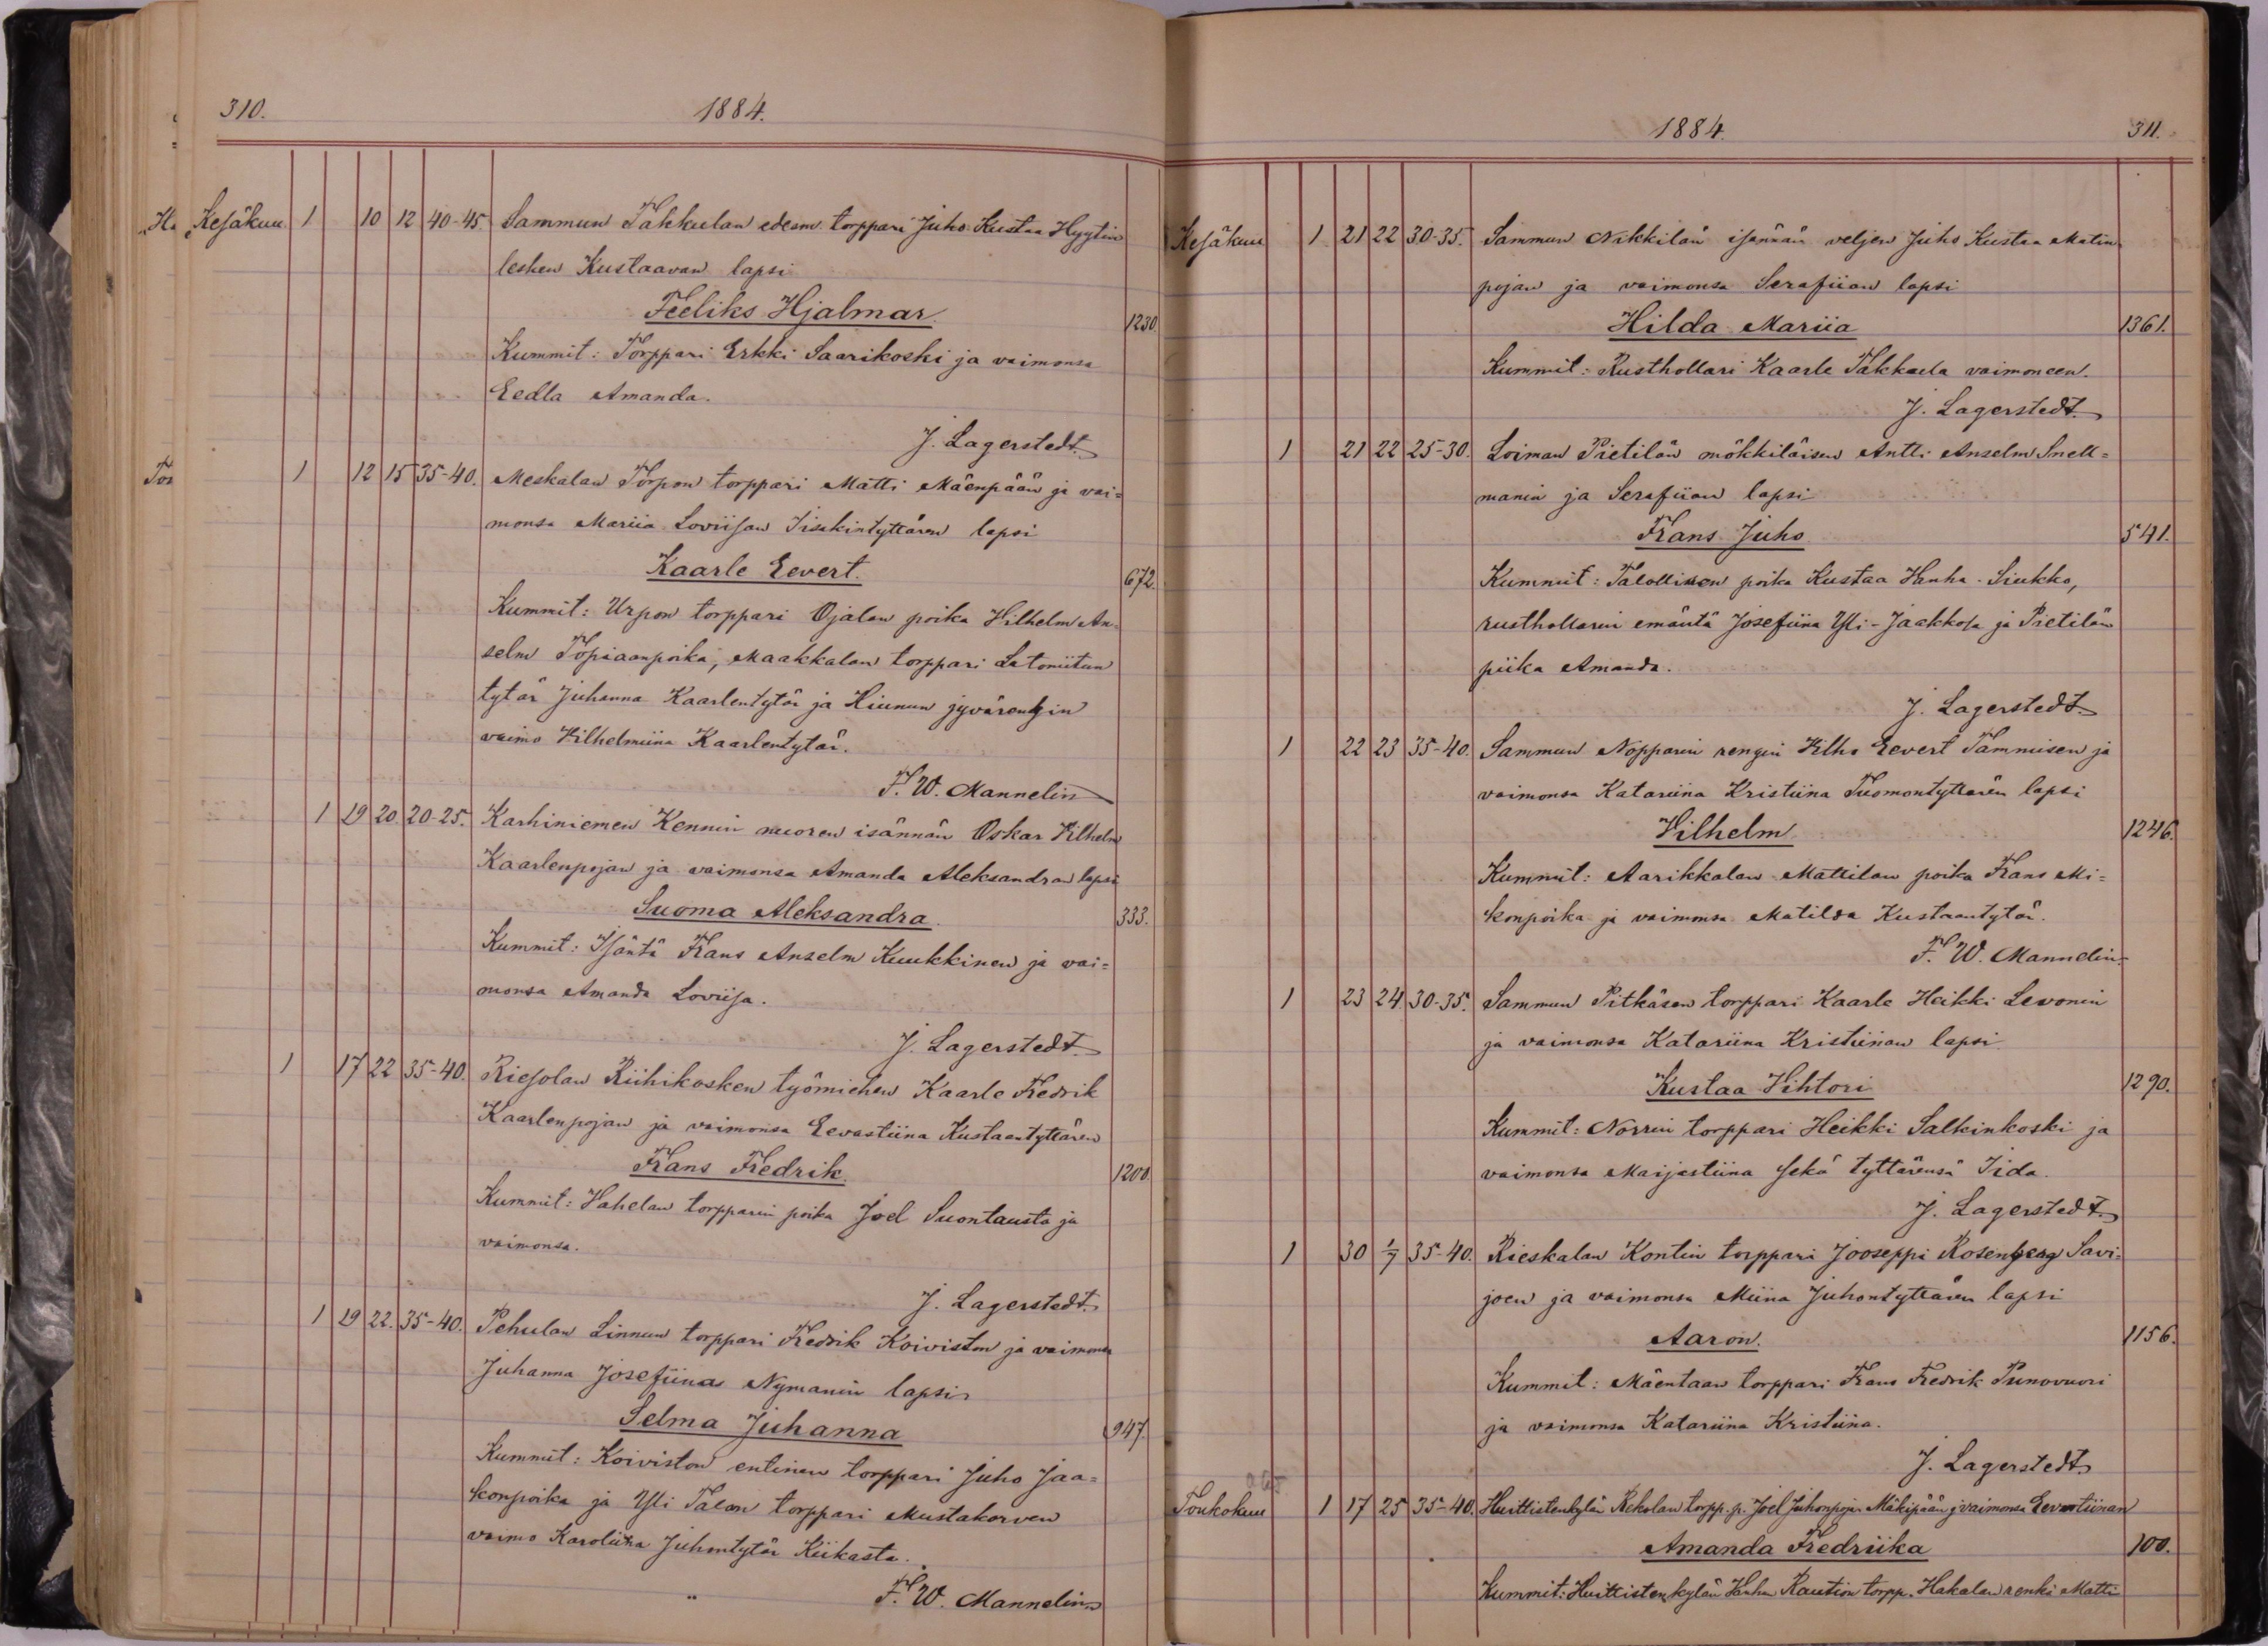 310. 1884.
Kesäkuu 1 10 12 40-45. Sammun Takkulan edesm. torppari Juho Kustaa Hyytin
lesken Kustaavan lapsi
Feeliks Hjalmar. 1230.
Kummit: Torppari Erkki Saarikoski ja vaimonsa
Eedla Amanda.
J. Lagerstedt.
1 12 15 35-40. Meskalan Torpon torppari Matti Mäenpään ja vai=
monsa Mariia Loviisan Iisakintyttären lapsi
Kaarle Eevert. 672.
Kummit: Urpon torppari Ojalan poika Vilhelm An=
selm Topiaanpoika, Maakkalan torppari Latoniitun
tytär Juhanna Kaarlentytär ja Hiunun jyvärengin
vaimo Vilhelmiina Kaarlentytär.
F. W. Mannelin
1 19 20. 20-25. Karhiniemen Kennin nuoren isännän Oskar Vilhelm
Kaarlenpojan ja vaimonsa Amanda Aleksandran lapsi
Suoma Aleksandra. 333.
Kummit: Isäntä Frans Anselm Kuukkinen ja vai=
monsa Amanda Loviisa.
J. Lagerstedt.
1 17 22 35-40. Riesolan Riihikosken työmiehen Kaarle Fredrik
Kaarlenpojan ja vaimonsa Eevastiina Kustaantyttären
Frans Fredrik. 1200.
Kummit: Vahelan torpparin poika Joel Suontausta ja
vaimonsa.
J. Lagerstedt.
1 19 22. 35-40. Pehulan Linnun torppari Fredrik Koiviston ja vaimonsa
Juhanna Josefiinas Nymanin lapsi
Selma Juhanna 947.
Kummit: Koiviston entinen torppari Juho Jaa=
konpoika ja Yli Talon torppari Mustakorven
vaimo Karoliina Juhontytär Kiikasta.
F. W. Mannelin
1884. 311.
Kesäkuu 1 21 22 30-35. Sammun Nikkilän isännän veljen Juho Kustaa Matin
pojan ja vaimonsa Serafiian lapsi
Hilda Mariia 1361.
Kummit: Rusthollari Kaarle Takkula vaimoneen.
J. Lagerstedt.
1 21 22 25-30. Loiman Pietilän mökkiläisen Antti Anselm Snell=
manin ja Serafiian lapsi
Frans Juho 541.
Kummit: Talollisen poika Kustaa Vanha-Siukko,
rusthollarin emäntä Josefiina Yli-Jaakkola ja Pietilän
piika Amanda.
J. Lagerstedt.
1 22 23 35-40. Sammun Nopparin rengin Vilho Eevert Tammisen ja
vaimonsa Katariina Kristiina Tuomontyttären lapsi
Vilhelm 1246.
Kummit: Aarikkalan Mattilan poika Frans Mi=
konpoika ja vaimonsa Matilda Kustaantytär.
F. W. Mannelin.
1 23 24. 30-35. Sammun Pitkäsen torppari Kaarle Heikki Levonin
ja vaimonsa Katariina Kristiinan lapsi
Kustaa Vihtori 1290.
Kummit: Norrin torppari Heikki Salkinkoski ja
vaimonsa Maijastiina sekä tyttärensä Iida.
J. Lagerstedt.
1 30 1/7 35-40. Rieskalan Kontin torppari Jooseppi Rosenberg Savi=
joen ja vaimonsa Miina Juhontyttären lapsi
Aaron. 1156.
Kummit: Mäentaan torppari Frans Fredrik Punovuori
ja vaimonsa Katariina Kristiina.
J. Lagerstedt.
Toukokuu 1 17 25 35-40. Huittistenkylän Rekolan torpp. p. Joel Juhonpoja Mäkipään j vaimonsa Eevastiinan
Amanda Fredriika 100.
Kummit: Huittistenkylän Vanhan Raution torpp. Hakalan renki Matti